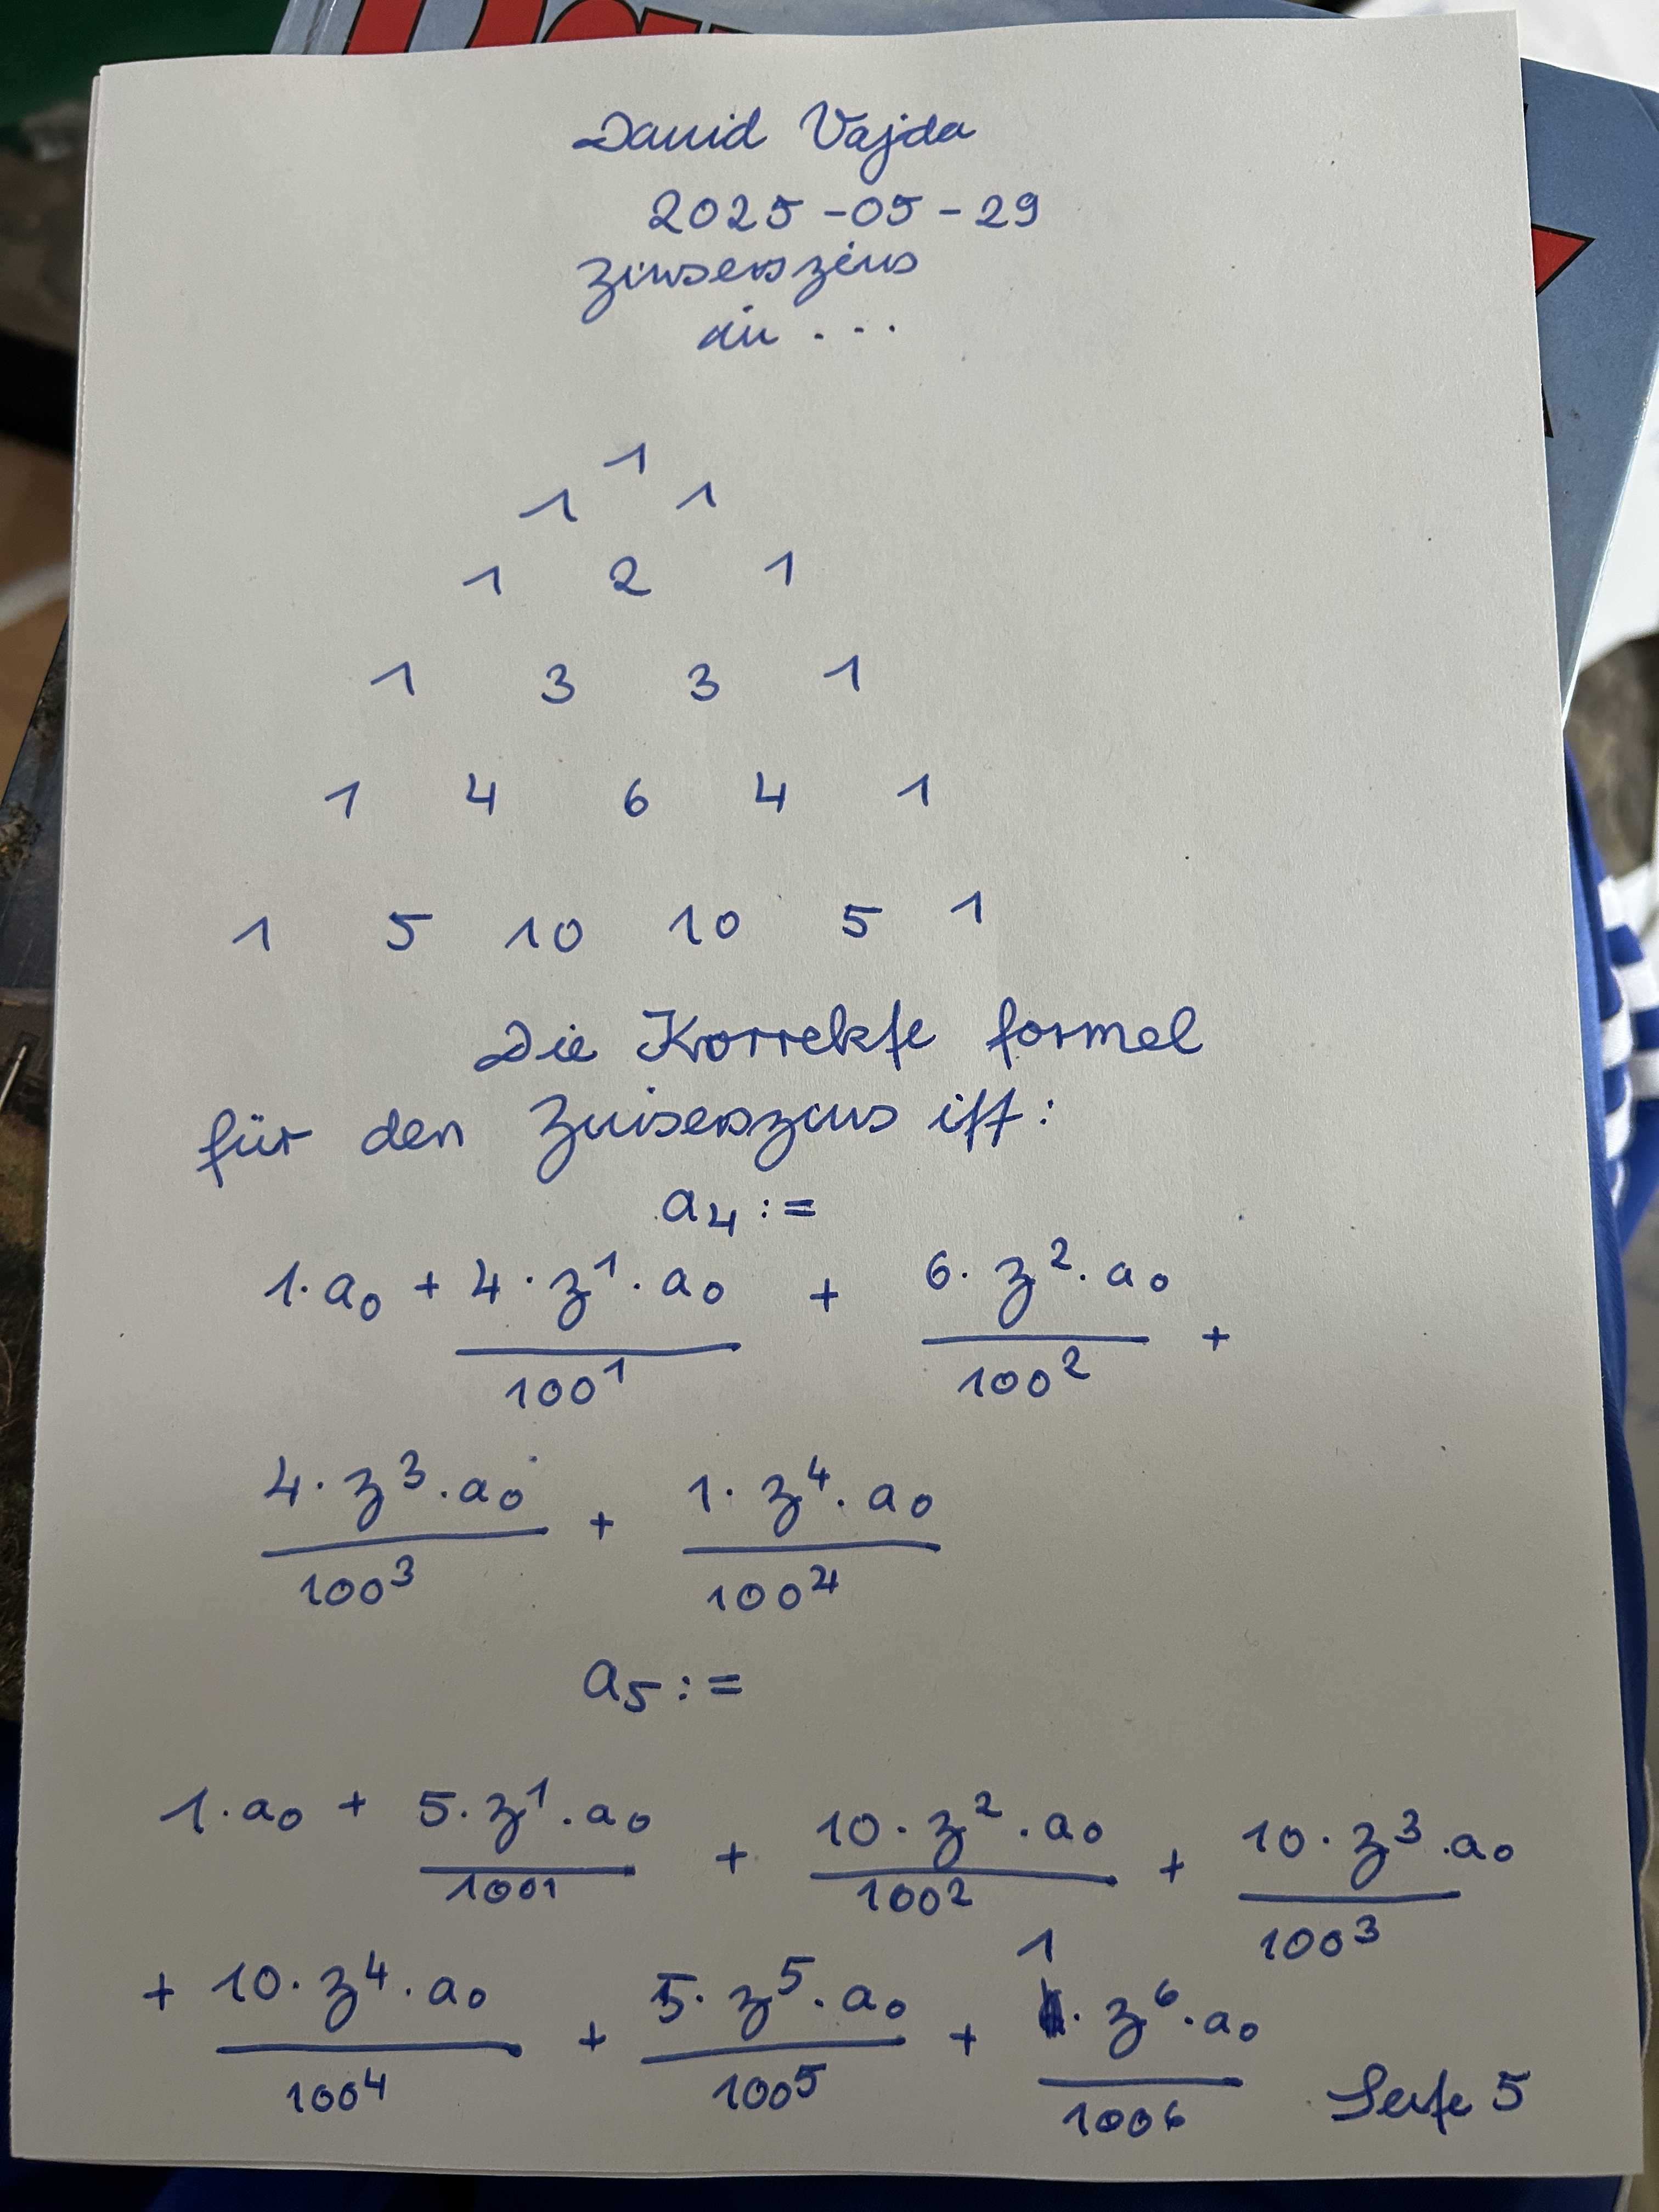 David Vajda
2025-05-29
Zinseszins
in ...
1
1 1
1 2 1
1 3 3 1
1 4 6 4 1
1 5 10 10 5 1
Die Korrekte formel
für den Zinseszins ist:
a₄ :=
1·a₀ + 4·z¹·a₀/100¹ + 6·z²·a₀/100² +
4·z³·a₀/100³ + 1·z⁴·a₀/100⁴
a₅ :=
1·a₀ + 5·z¹·a₀/100¹ + 10·z²·a₀/100² + 10·z³·a₀/100³
+ 10·z⁴·a₀/100⁴ + 5·z⁵·a₀/100⁵ + 1·z⁶·a₀/100⁶
Seite 5